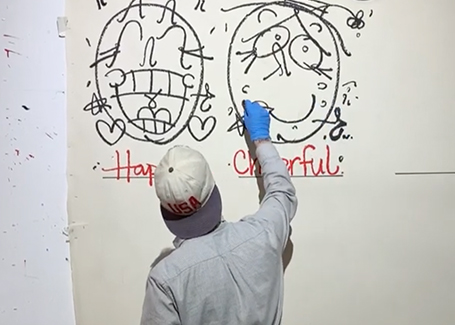 Hap
Cheerful.
USA